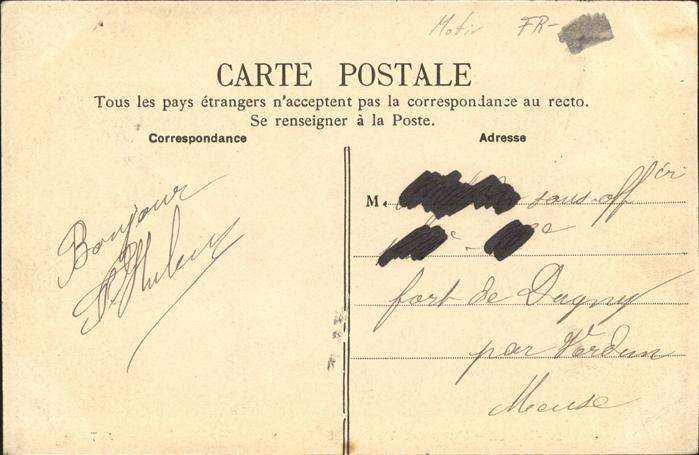 Motiv FR-
CARTE POSTALE
Tous les pays étrangers n'acceptent pas la correspondance au recto.
Se renseigner à la Poste.
Correspondance
Bonjour
Adresse
M. sous-off
fort de Dugny
par Verdun
Meuse